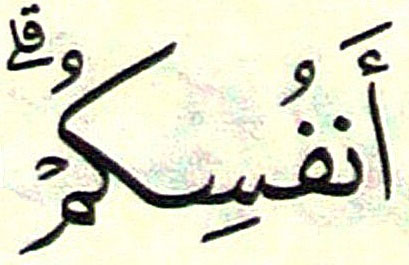 أَنفُسِكُمْۗ